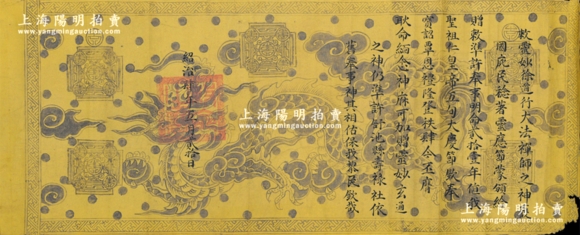 上海陽明拍賣
www.yangmingauction.com
上海陽明拍賣
www.yangmingauction.com
敕靈妙徐道行大法禪師之神
護國庇民稔著靈應節蒙頒給
贈敕準許奉事明命貳拾壹年值我
聖祖仁皇帝五旬大慶節欽奉
寶詔覃恩禮隆登秩肆今丕膺
耿命緬念神庥可加贈靈妙玄通
之神仍準許 社依
舊奉事神其相佑保我黎民欽哉
紹治 年 月 拾 日
上海陽明拍賣
www.yangmingauction.com
上海陽明拍賣
www.yangmingauction.com